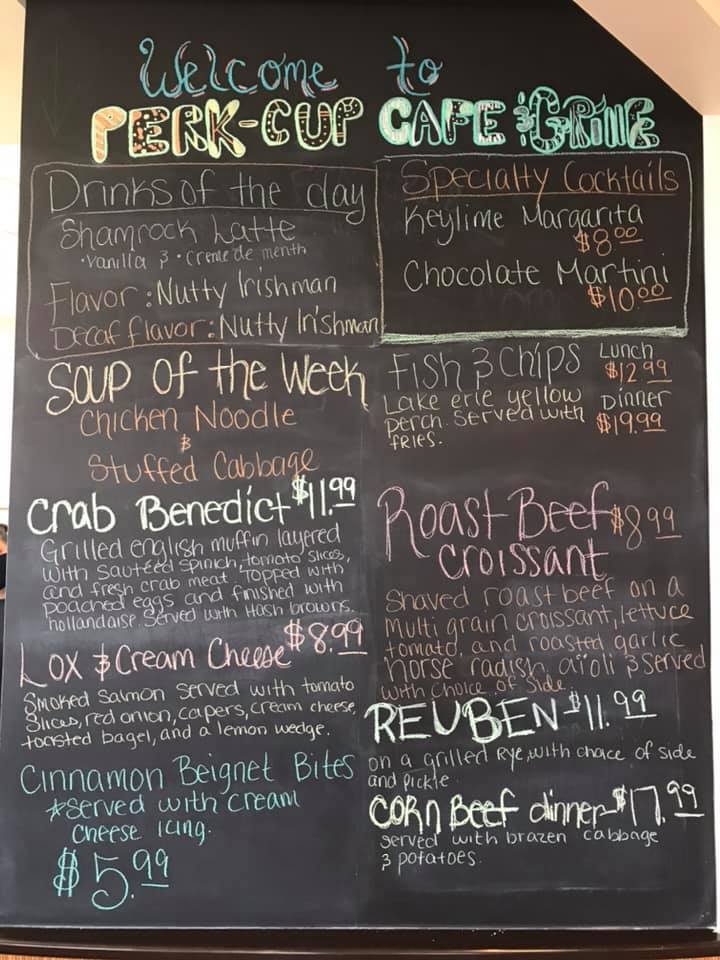 Welcome to
PERK-CUP CAFE & GRILLE
Drinks of the day
Shamrock Latte
•Vanilla & •Creme de menth
Flavor: Nutty Irishman
Decaf flavor: Nutty Irishman
Specialty Cocktails
Keylime Margarita
$8.00
Chocolate Martini
$10.00
Soup of the Week
Chicken Noodle
&
Stuffed Cabbage
Crab Benedict $11.99
Grilled english muffin layered
with sauteed spinich, tomato slices,
and fresh crab meat topped with
poached eggs and finished with
hollandaise served with hash browns.
Lox & Cream Cheese $8.99
Smoked salmon served with tomato
slices, red onion, capers, cream cheese,
toasted bagel, and a lemon wedge.
Cinnamon Beignet Bites
*Served with cream
cheese icing.
$5.99
Fish & Chips Lunch
$12.99
Lake erie yellow Dinner
perch. Served with $19.99
fries.
Roast Beef $8.99
Croissant
Shaved roast beef on a
multi grain croissant, lettuce
tomato, and roasted garlic
horse radish aioli & served
with choice of side
REUBEN $11.99
on a grilled Rye, with choice of side
and pickle
CORN Beef dinner $17.99
served with brazen cabbage
& potatoes.